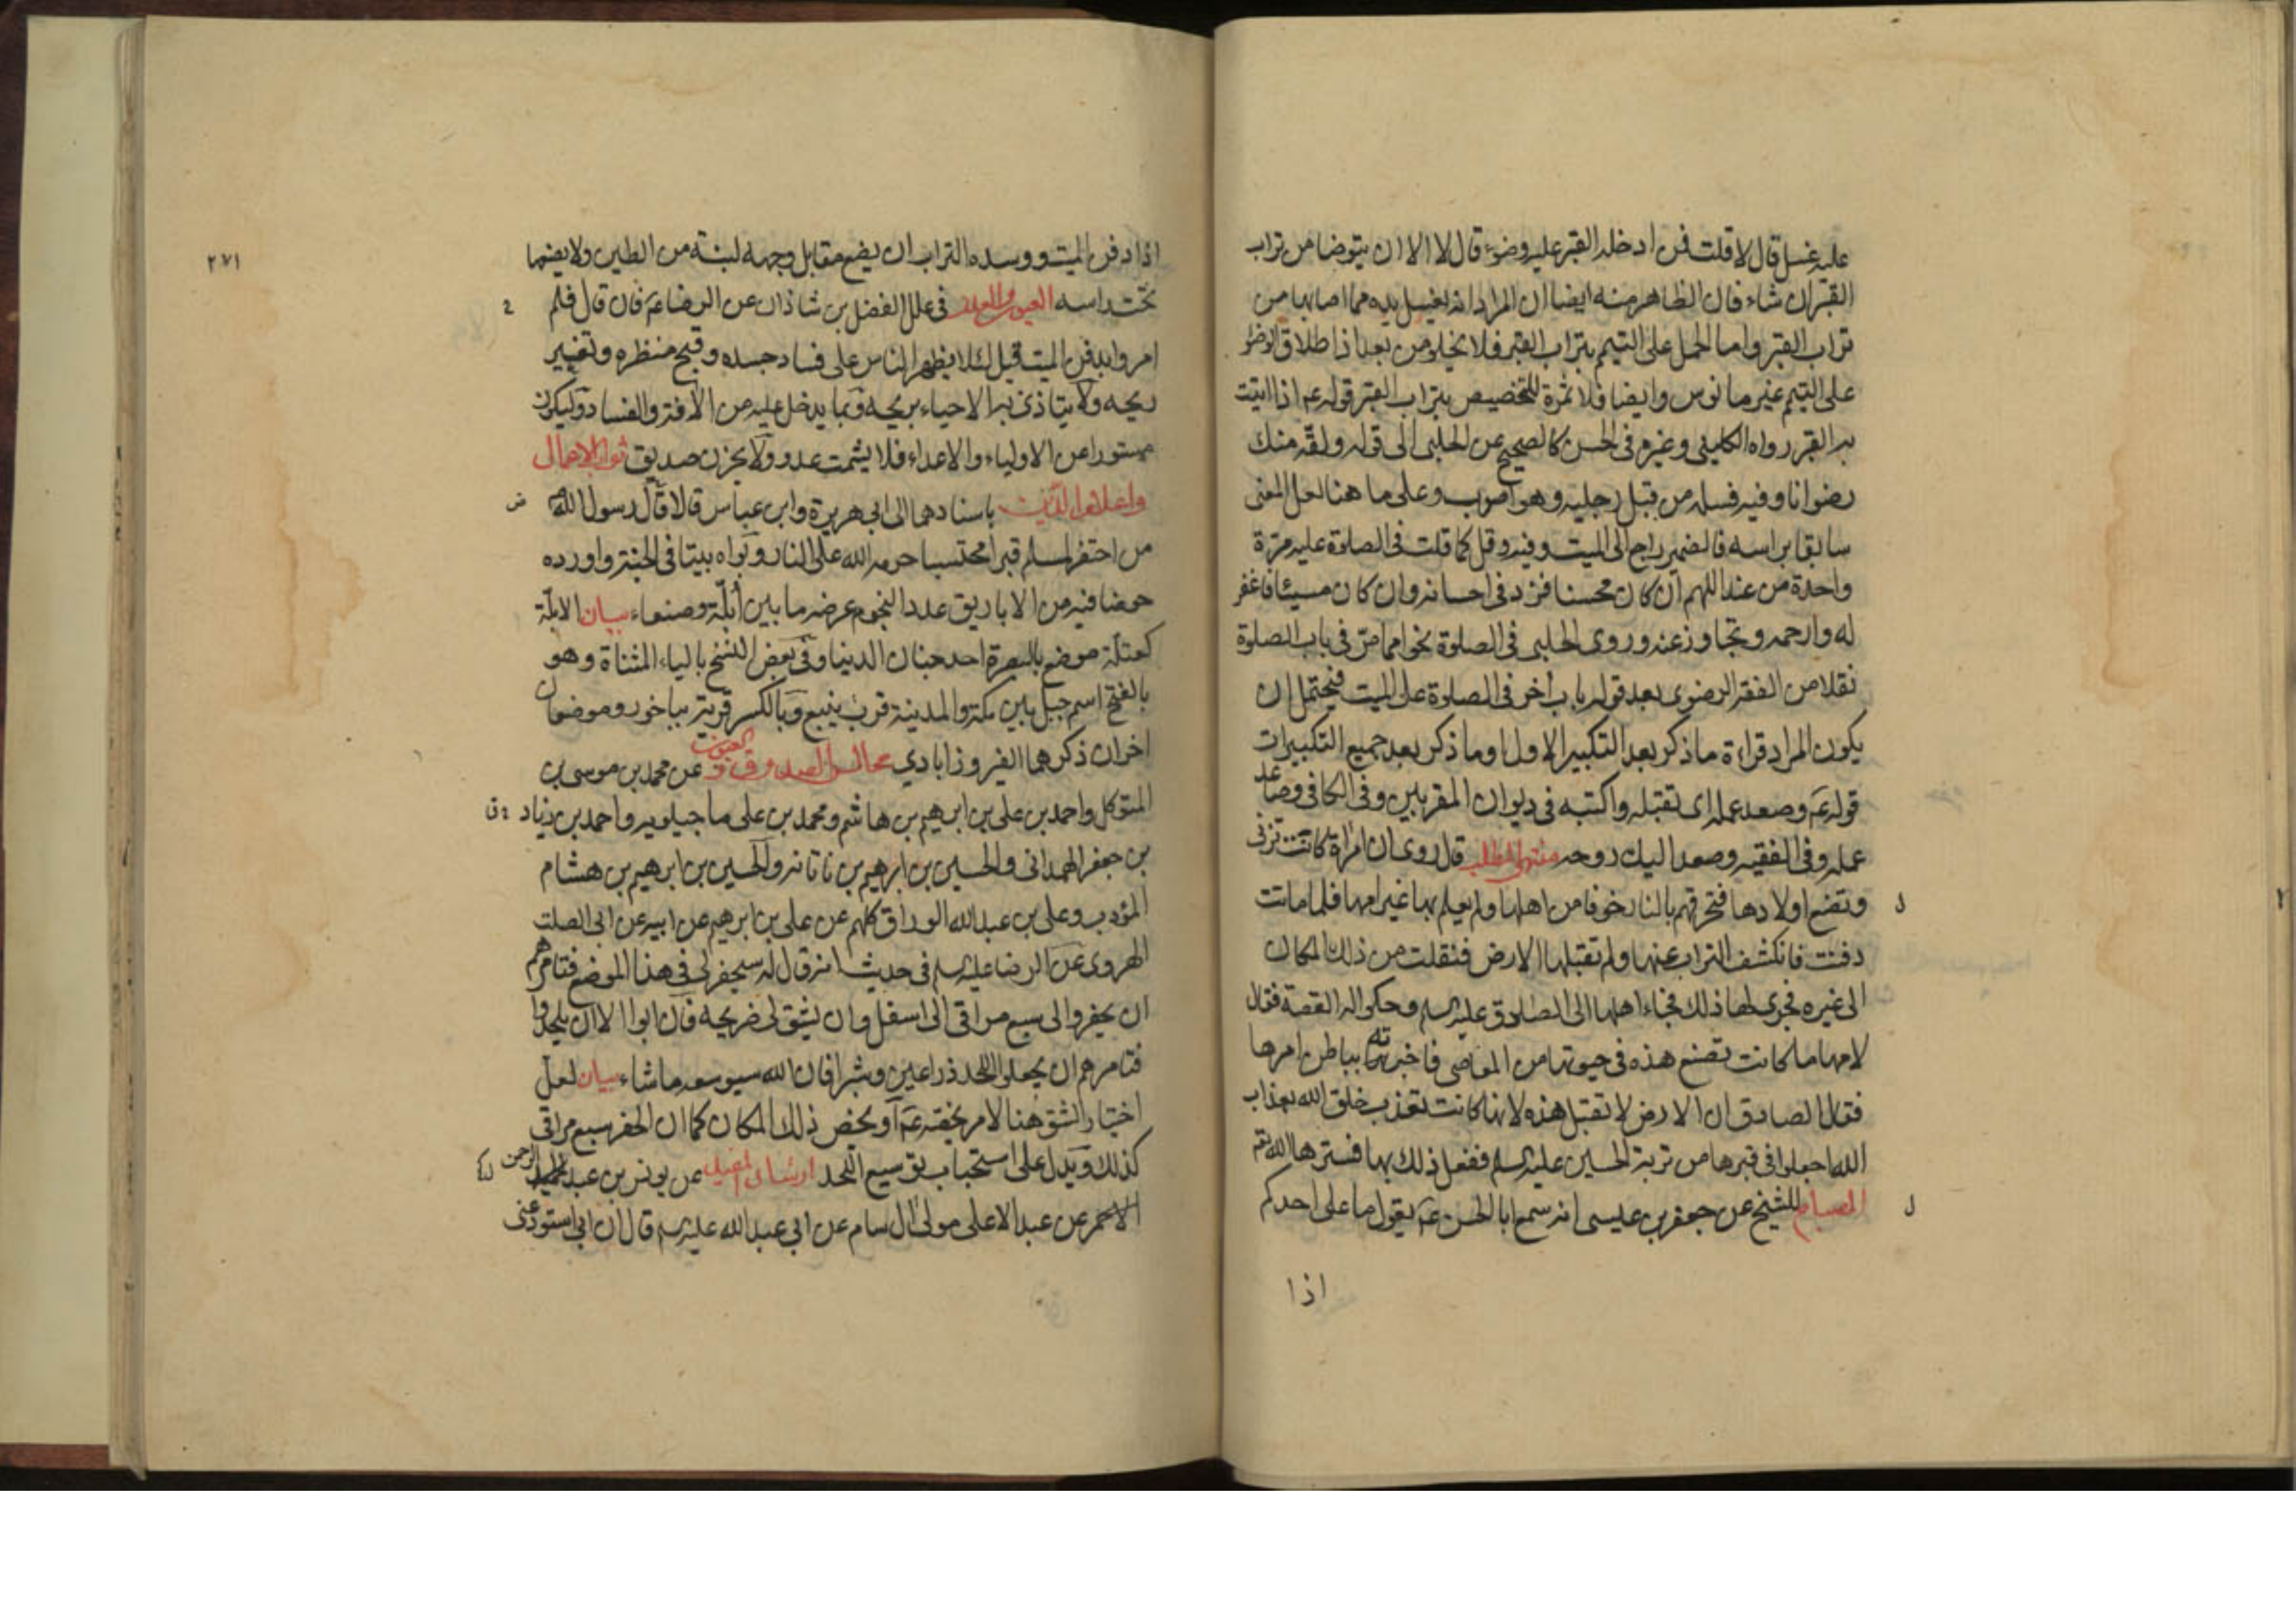 عليه غسل قال لا قلت فمن ادخله القبر عليه وضوء قال لا الا ان يتوضا من تراب
القبر ان شاء فان الظاهر منه ايضا ان المراد انه يغسل يده مما اصابها من
تراب القبر واما الحمل على التيمم بتراب القبر فلا يخلو من بعد اذ اطلاق الوضوء
على التيمم غير مانوس وايضا فلا ثمرة للتخصيص بتراب القبر قوله عم اذا اتيت
به القبر رواه الكليني وغيره في الحسن كالصحيح عن الحلبي الى قوله ولقه منك
رضوانا وفيه فسله من قبل رجليه وهو اصوب وعلى ما هنا لعل المعنى
سابقا براسه فالضمير راجع الى الميت وفيه وقل كما قلت في الصلوة عليه مرة
واحدة من عند اللهم ان كان محسنا فزد في احسانه وان كان مسيئا فاغفر
له وارحمه وتجاوز عنه وروى الحلبي في الصلوة نحوا مما مر في باب الصلوة
نقلا من الفقه الرضوى بعد قوله باب اخر في الصلوة على الميت فيحتمل ان
يكون المراد قراءة ما ذكر بعد التكبير الاول او ما ذكر بعد جميع التكبيرات
قوله عم وصعد عمله اى تقبله واكتبه في ديوان المقربين وفي الكافي وصاعد
عمله وفي الفقيه وصعد اليك روحه منتهى المطلب قال روى ان امراة كانت تزني
وتضع اولادها فتحرقهم بالنار خوفا من اهلها ولم يعلم بها غير امها فلما ماتت
ل
دفنت فانكشف التراب عنها ولم تقبلها الارض فنقلت من ذلك المكان
الى غيره فجرى لها ذلك فجاء اهلها الى الصادق عليه السلم وحكوا له القصة فقال
لامها ما كانت تصنع هذه في حيوتها من المعاصي فاخبرته بباطن امرها
فقال الصادق ان الارض لا تقبل هذه لانها كانت تعذب خلق الله بعذاب
الله اجعلوا في قبرها من تربة الحسين عليه السلم ففعل ذلك بها فسترها الله تعم
المصباح للشيخ عن جعفر بن عيسى انه سمع ابا الحسن عم يقول ما على احدكم
ل
اذا
٢٧١
اذا دفن الميت ووسده التراب ان يضع مقابل وجهه لبنة من الطين ولا يضعها
تحت راسه العيون والعلل في علل الفضل بن شاذان عن الرضا عم فان قال فلم
امروا بدفن الميت قيل لئلا يظهر الناس على فساد جسده وقبح منظره وتغيير
ريحه ولا يتاذى به الاحياء بريحه وبما يدخل عليه من الآفة والفساد وليكون
مستورا عن الاولياء والاعداء فلا يشمت عدو ولا يحزن صديق ثواب الاعمال
واعلام الدين باسنادهما الى ابي هريرة وابن عباس قالا قال رسول الله ص
من احتفر لمسلم قبرا محتسبا حرمه الله على النار وبواه بيتا في الجنة واورده
حوضا فيه من الاباريق عدد النجوم عرضه ما بين أبلّة وصنعاء بيان الابلّة
كعتلة موضع بالبصرة احد جنان الدنيا وفي بعض النسخ بالياء المثناة وهو
بالفتح اسم جبل بين مكة والمدينة قرب ينبع وبالكسر قرية بباخرز وموضعان
اخران ذكرهما الفيروزابادي مجالس الصدوق و العيون عن محمد بن موسى بن
المتوكل واحمد بن على بن ابرهيم بن هاشم ومحمد بن على ماجيلويه واحمد بن زياد
بن جعفر الهمداني والحسين بن ابرهيم بن ناتانه والحسين بن ابرهيم بن هشام
المؤدب وعلى بن عبدالله الوراق كلهم عن على بن ابرهيم عن ابيه عن ابي الصلت
الهروى عن الرضا عليه السلم في حديث انه قال له سيحفر لي في هذا الموضع فتامرهم
ان يحفروا لي سبع مراقي الى اسفل وان يشق لي ضريحه فان ابوا الا ان يلحدوا
فتامرهم ان يجعلوا اللحد ذراعين وشبرا فان الله سيوسعه ما شاء بيان لعل
اختيار الشق هنا لامر يخصه عم او يخص ذلك المكان كما ان الحفر سبع مراقي
كذلك ويدل على استحباب توسيع اللحد ارشاد المفيد عن يونس بن عبد الرحمن
الاحمر عن عبد الاعلى مولى ال سام عن ابي عبد الله عليه السلم قال ان ابي استودعني